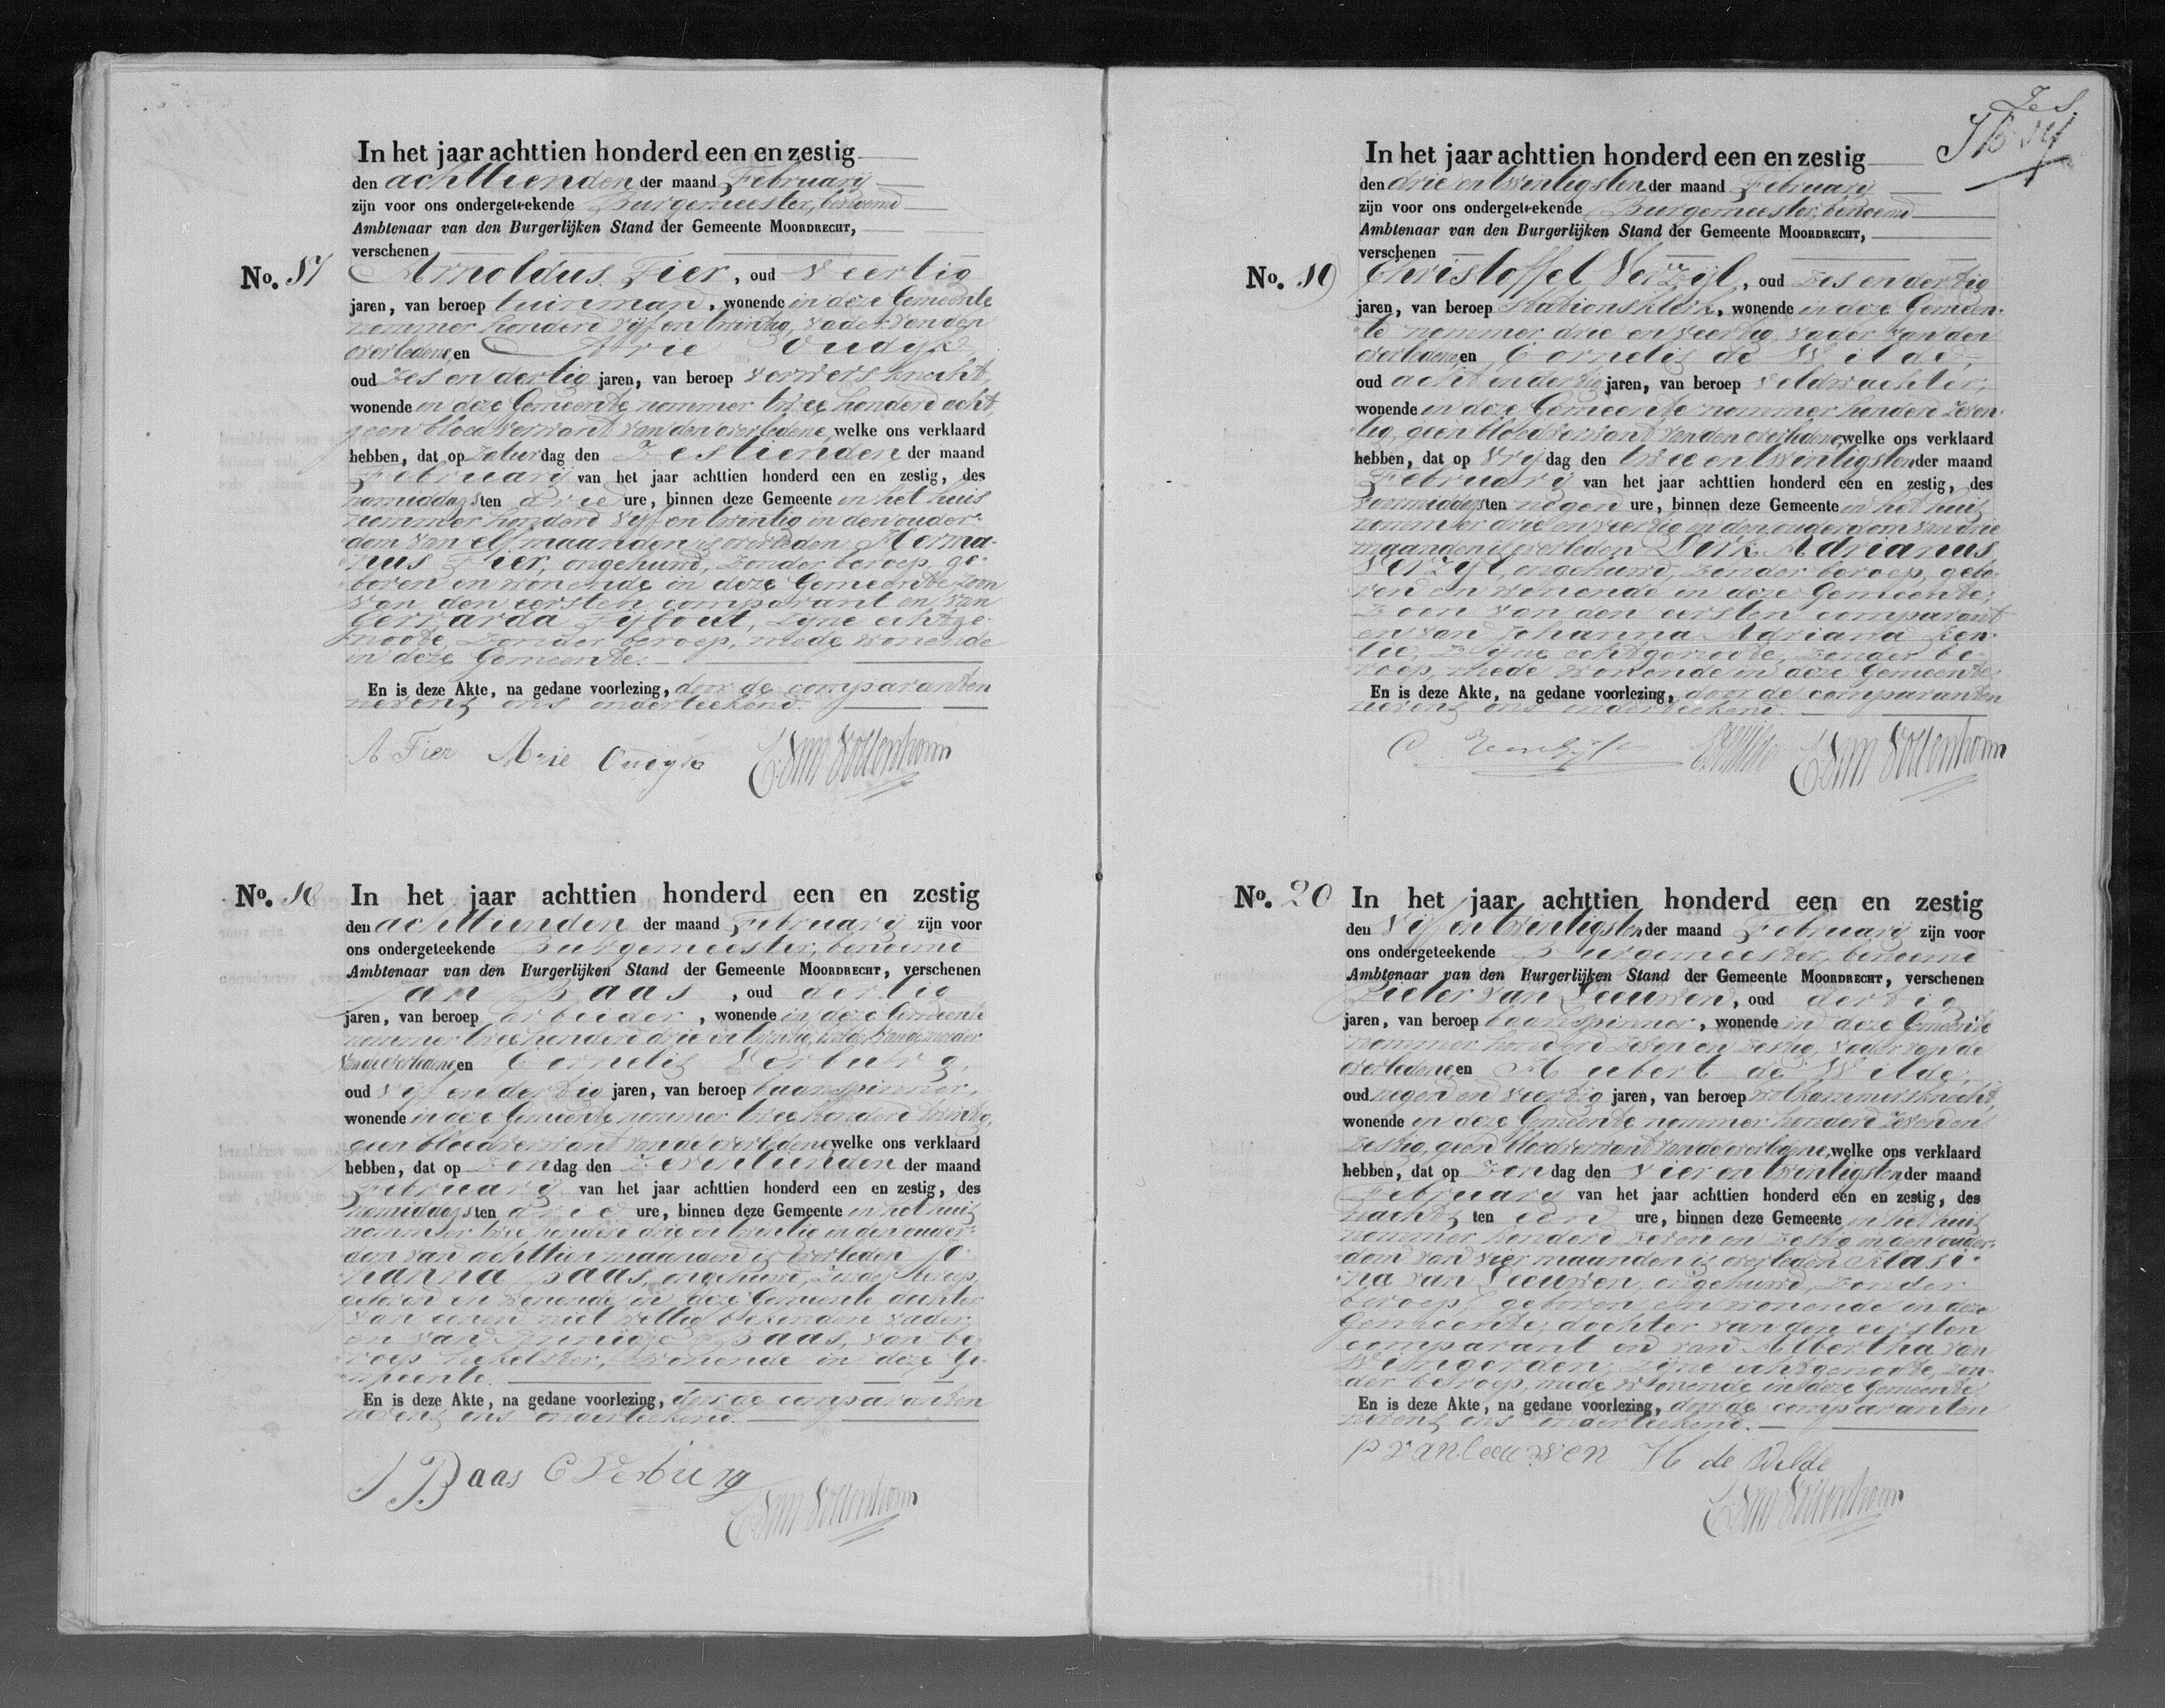 In het jaar achttien honderd een en zestig
den achttienden der maand Februarij
zijn voor ons ondergeteekende Burgemeester, benoemd
Ambtenaar van den Burgerlijken Stand der Gemeente MOORDRECHT,
verschenen
No. 17 Arnoldus Fier, oud veertig
jaren, van beroep tuinman, wonende in deze Gemeente
nommer honderd vijf en twintig, vader van den
overledene, en Arie Oudijk
oud zes en dertig jaren, van beroep verwersknecht,
wonende in deze Gemeente nommer twee honderd acht,
geen bloedverwant van den overledene, welke ons verklaard
hebben, dat op Zaturdag den Zestienden der maand
Februarij van het jaar achttien honderd een en zestig, des
namiddags ten drie ure, binnen deze Gemeente in het huis
nommer honderd vijf en twintig in den ouder-
dom van elf maanden is overleden Herma-
nus Fier, ongehuwd, zonder beroep, ge-
boren en wonende in deze Gemeente, zoon
van den eersten comparant en van
Gerrarda Zijbout, zijne echtge-
noote, zonder beroep, mede wonende
in deze Gemeente.
En is deze Akte, na gedane voorlezing, door de comparanten
nevens ons onderteekend.
A Fier Arie Oudyk
No. 18 In het jaar achttien honderd een en zestig
den achttienden der maand Februarij zijn voor
ons ondergeteekende Burgemeester, benoemd
Ambtenaar van den Burgerlijken Stand der Gemeente MOORDRECHT, verschenen
Jan Baas, oud dertig
jaren, van beroep arbeider, wonende in deze Gemeente
nommer twee honderd drie en twintig, broeder van de moeder
van de overledene en Cornelis Verburg,
oud vijf en dertig jaren, van beroep baanspinner,
wonende in deze Gemeente nommer twee honderd twintig,
geen bloedverwant van de overledene, welke ons verklaard
hebben, dat op Zondag den Zeventienden der maand
Februarij van het jaar achttien honderd een en zestig, des
namiddags ten drie ure, binnen deze Gemeente in het huis
nommer twee honderd drie en twintig in den ouder-
dom van achttien maanden is overleden Jo-
hanna Baas, ongehuwd, zonder beroep,
geboren en wonende in deze Gemeente, dochter
van eenen niet wettig bekenden vader
en van Annigje Baas, van be-
roep hekelster, wonende in deze Ge-
meente.
En is deze Akte, na gedane voorlezing, door de comparanten
nevens ons onderteekend.
J Baas C Verburg
Zes
In het jaar achttien honderd een en zestig
den drie en twintigsten der maand Februarij
zijn voor ons ondergeteekende Burgemeester, benoemd
Ambtenaar van den Burgerlijken Stand der Gemeente MOORDRECHT,
verschenen
No. 19 Christoffel Verzijl, oud zes en dertig
jaren, van beroep Stationsklerk, wonende in deze Gemeen-
te nommer drie en veertig, vader van den
overledene, en Cornelis de Wilde,
oud acht en dertig jaren, van beroep veldwachter,
wonende in deze Gemeente nommer honderd zeven-
tig, geen bloedverwant van den overledene, welke ons verklaard
hebben, dat op Vrijdag den twee en twintigsten der maand
Februarij van het jaar achttien honderd een en zestig, des
voormiddags ten negen ure, binnen deze Gemeente in het huis
nommer drie en veertig in den ouderdom van drie
maanden is overleden Dirk Adrianus
Verzijl, ongehuwd, zonder beroep, gebo-
ren en wonende in deze Gemeente,
zoon van den eersten comparant
en van Johanna Adriana
zijne echtgenoote, zonder be-
roep, mede wonende in deze Gemeente.
En is deze Akte, na gedane voorlezing, door de comparanten
nevens ons onderteekend.
No. 20 In het jaar achttien honderd een en zestig
den Vijf en twintigsten der maand Februarij zijn voor
ons ondergeteekende Burgemeester, benoemd
Ambtenaar van den Burgerlijken Stand der Gemeente MOORDRECHT, verschenen
Pieter van Leeuwen, oud dertig
jaren, van beroep baanspinner, wonende in deze Gemeente
nommer honderd zeven en zestig, vader van de
overledene, en Hubert de Wilde,
oud negen en veertig jaren, van beroep wolkammersknecht,
wonende in deze Gemeente nommer honderd zeven en
zestig, geen bloedverwant van de overledene, welke ons verklaard
hebben, dat op Zondag den vier en twintigsten der maand
Februarij van het jaar achttien honderd een en zestig, des
nachts ten een ure, binnen deze Gemeente in het huis
nommer honderd zeven en zestig in den ouder-
dom van vier maanden is overleden Klasi-
na van Leeuwen, ongehuwd, zonder
beroep, geboren en wonende in deze
Gemeente, dochter van den eersten
comparant en van Albertha van
Wijngerden, zijne echtgenoote, zon-
der beroep, mede wonende in deze Gemeente.
En is deze Akte, na gedane voorlezing, door de comparanten
nevens ons onderteekend.
P van Leeuwen H de Wilde